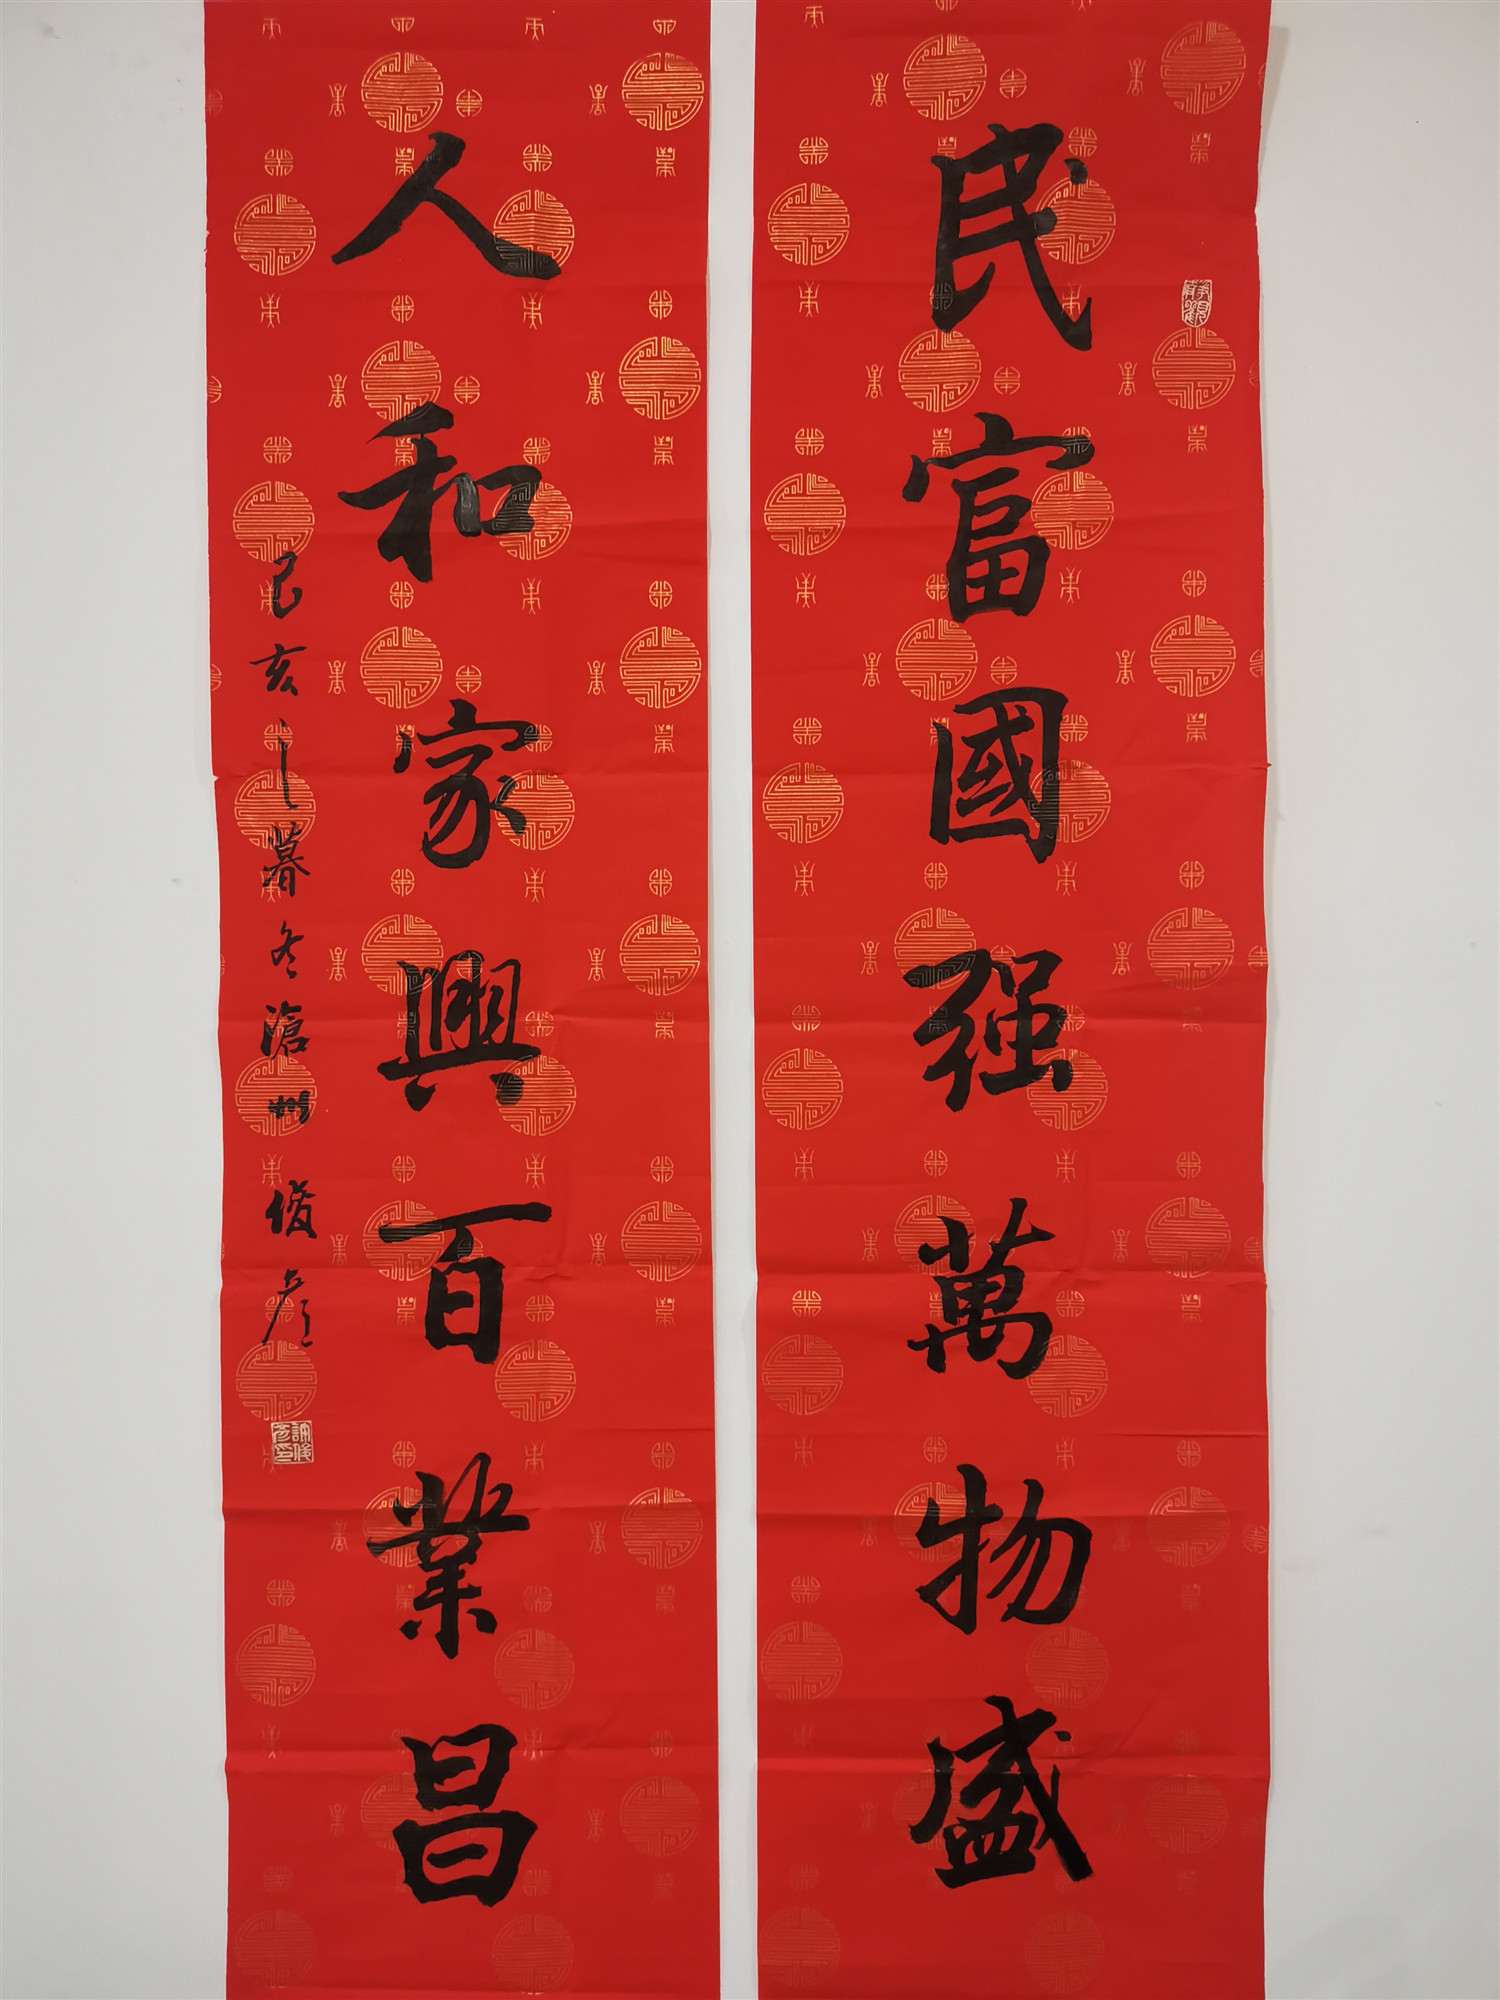 民富國强萬物盛
人和家興百業昌
己亥之暮冬滄州俊彥